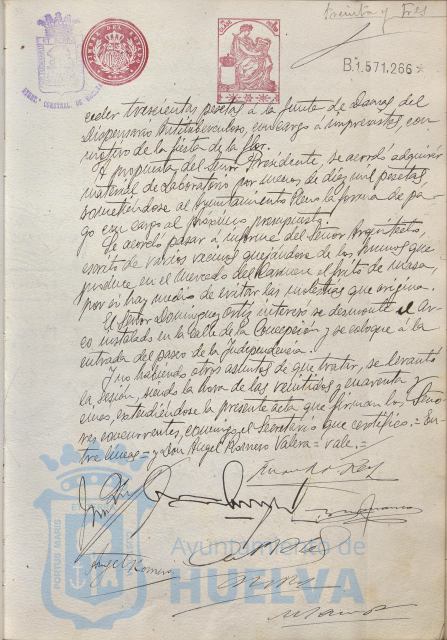 treinta y tres
B.1.571.266*
ceder trescientas pesetas á la Junta de Damas del
Dispensario Antituberculoso, con cargo á imprevistos, con
motivo de la fiesta de la flor.
A propuesta del Señor Presidente, se acordó adquirir
material de Laboratorio por menos de diez mil pesetas
sometiéndose al Ayuntamiento Pleno la forma de pa-
go con cargo al próximo presupuesto.
Se acordó pasar á informe del Señor Arquitecto,
escrito de varios vecinos quejándose de los humos que
produce en el Mercado del Carmen el frito de masa,
por si hay medio de evitar las molestias que origina.
El Señor Domínguez Ortiz interesó se desmonte el Ar-
co instalado en la calle de la Concepción y se coloque á la
entrada del paseo de la Independencia.
Y no habiendo otros asuntos de que tratar, se levantó
la sesión, siendo la hora de las veintidos y cuarenta y
cinco, extendiéndose la presente acta que firman los Seño-
res concurrentes, conmigo el Secretario que certifico. = En-
tre lineas = y Don Angel Romero Valera = vale. =
Angel Romero
PORTUS MARIS
Ayuntamiento de
HUELVA